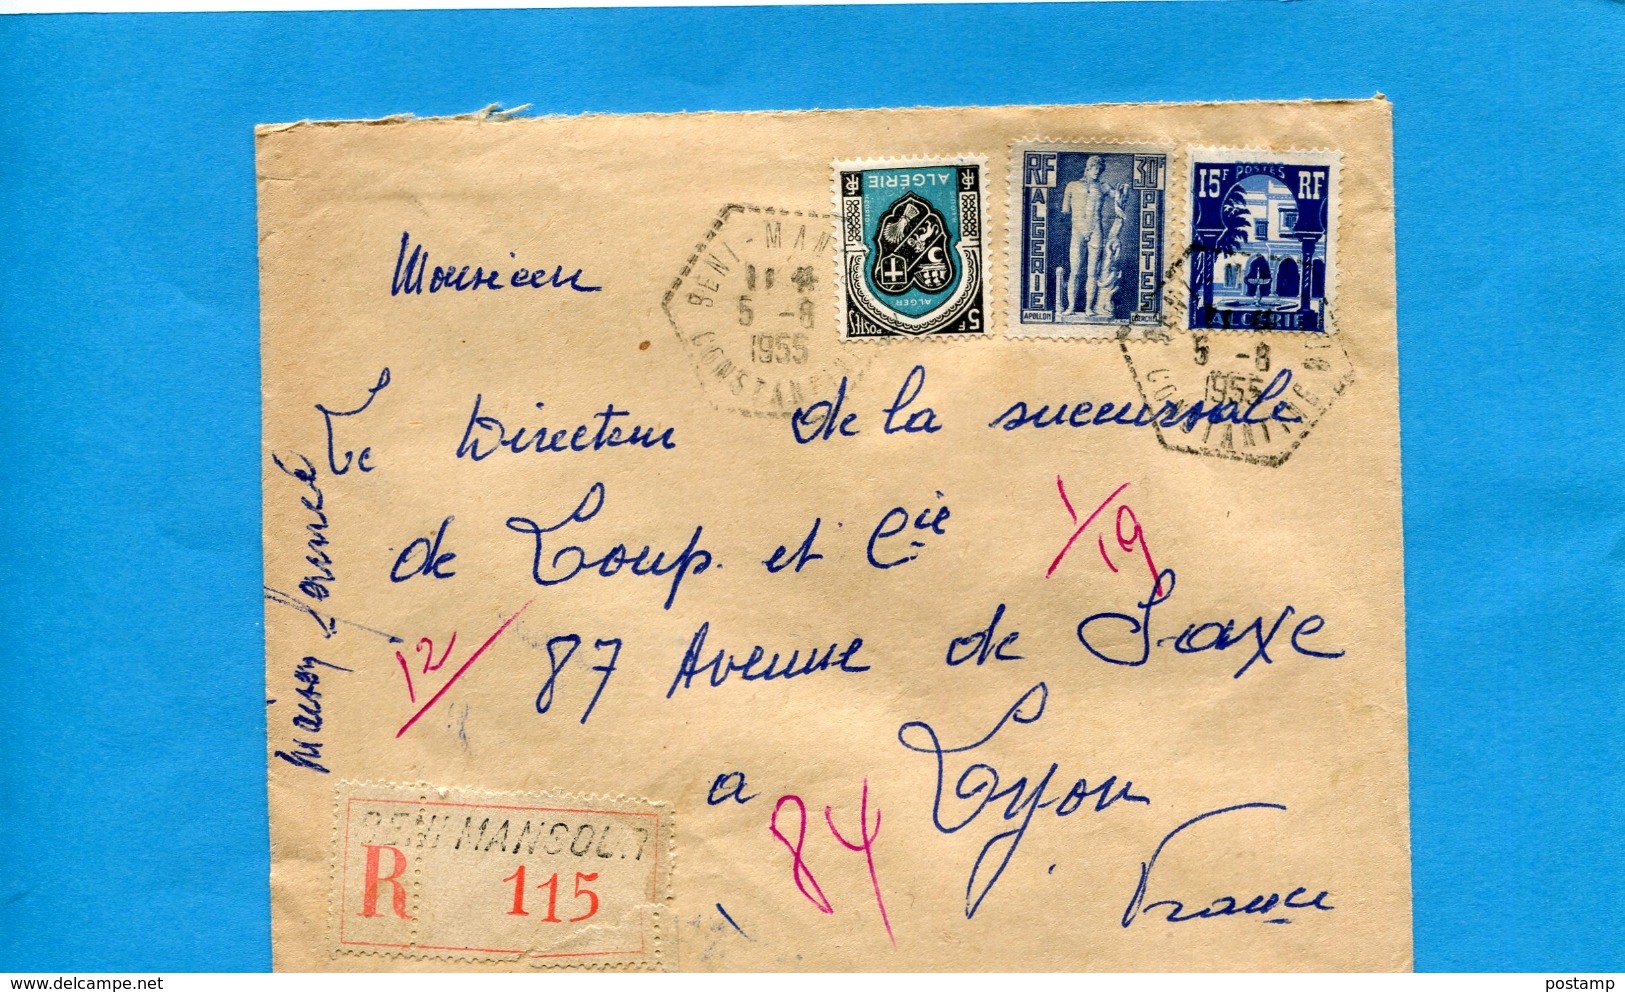 ALGÉRIE
ALGER
5F
POSTES
RF 30F
ALGERIE
POSTES
APOLLON
15F POSTES RF
ALGERIE
BENI-MAN
5 -8
1955
CONSTANTINE
5 -8
1955
CONSTANTINE
Monsieur
Le Directeur de la succursale
de Loup. et Cie
87 Avenue de Saxe
a Lyon
France
maison
1/19
12/
84
BENI MANSOUR
R 115
postamp